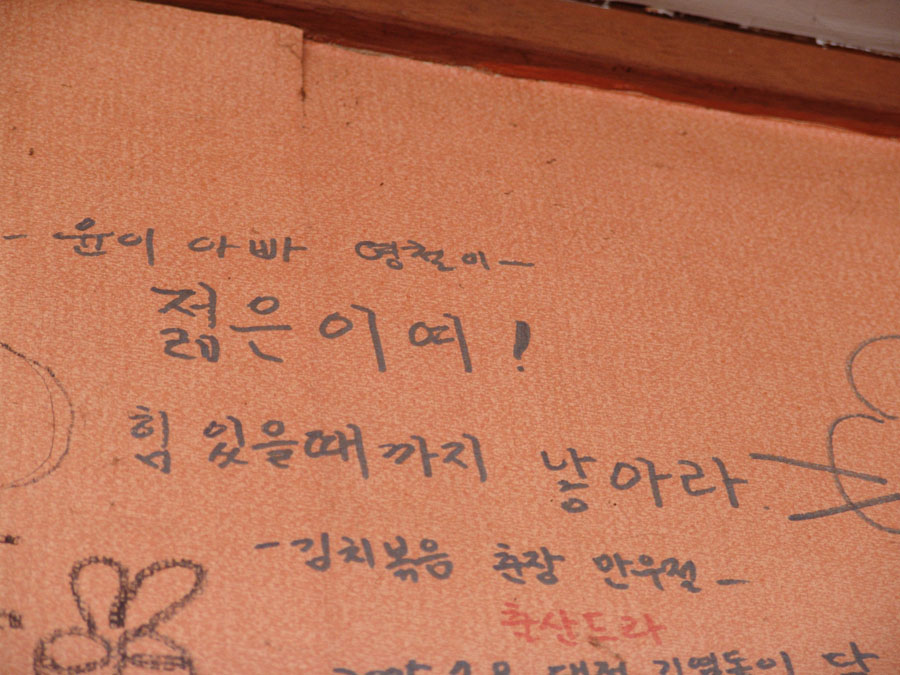 - 윤이 아빠 영철이 -
젊은이여!
힘 있을때까지 낳아라.
- 김치볶음 춘장 만우절 -
축산드라
대전